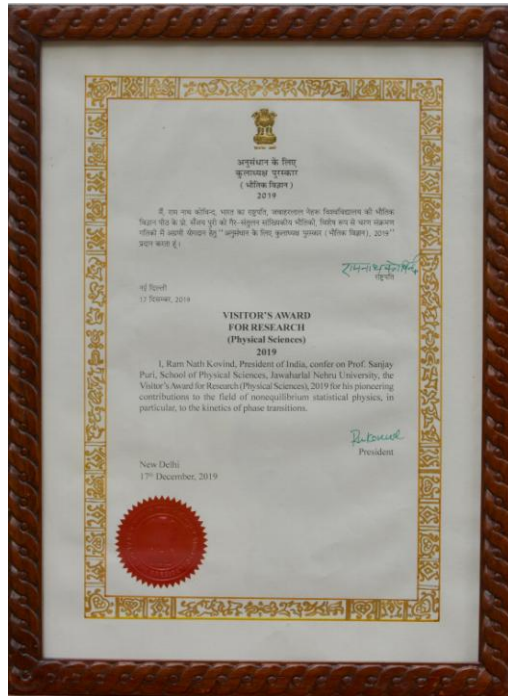 अनुसंधान के लिए
कुलाध्यक्ष पुरस्कार
( भौतिक विज्ञान )
2019
मैं, राम नाथ कोविन्द, भारत का राष्ट्रपति, जवाहरलाल नेहरू विश्वविद्यालय की भौतिक
विज्ञान पीठ के प्रो. संजय पुरी को गैर-संतुलन सांख्यिकीय भौतिकी, विशेष रूप से चरण संक्रमण
गतिकी में अग्रणी योगदान हेतु "अनुसंधान के लिए कुलाध्यक्ष पुरस्कार (भौतिक विज्ञान), 2019"
प्रदान करता हूं।
राष्ट्रपति
नई दिल्ली
17 दिसम्बर, 2019
VISITOR'S AWARD
FOR RESEARCH
(Physical Sciences)
2019
I, Ram Nath Kovind, President of India, confer on Prof. Sanjay
Puri, School of Physical Sciences, Jawaharlal Nehru University, the
Visitor's Award for Research (Physical Sciences), 2019 for his pioneering
contributions to the field of nonequilibrium statistical physics, in
particular, to the kinetics of phase transitions.
President
New Delhi
17th December, 2019